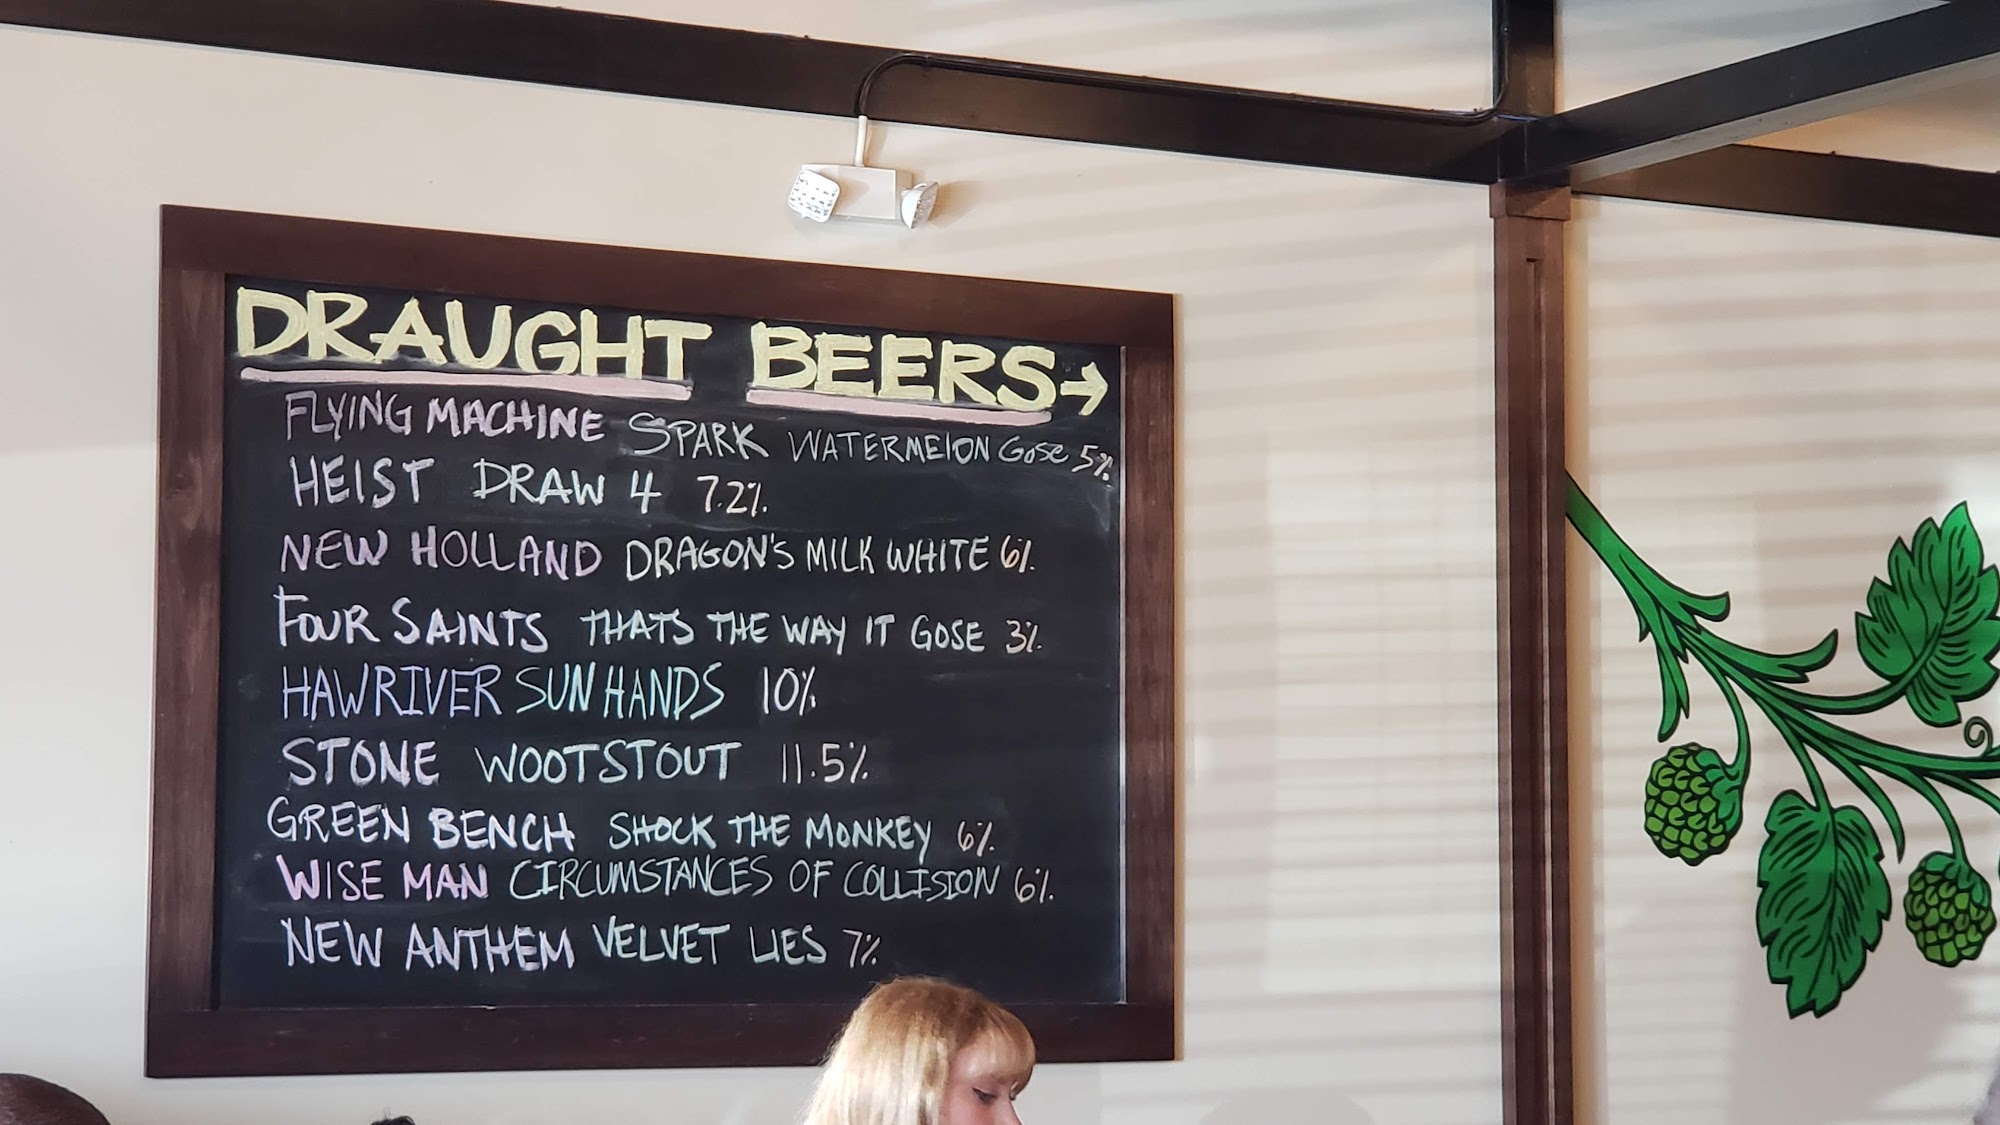 DRAUGHT BEERS→
FLYING MACHINE SPARK WATERMELON GOSE 5%
HEIST DRAW 4 7.2%
NEW HOLLAND DRAGON'S MILK WHITE 6%
FOUR SAINTS THATS THE WAY IT GOSE 3%
HAWRIVER SUN HANDS 10%
STONE WOOTSTOUT 11.5%
GREEN BENCH SHOCK THE MONKEY 6%
WISE MAN CIRCUMSTANCES OF COLLISION 6%
NEW ANTHEM VELVET LIES 7%